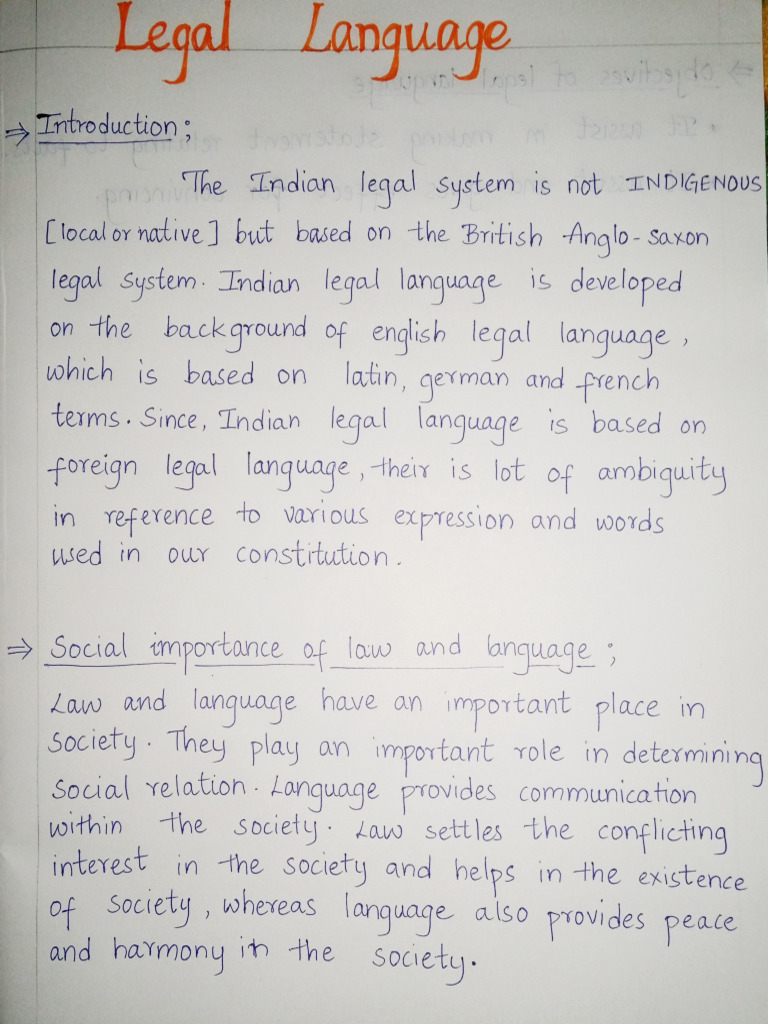 Legal Language
⇒ Introduction ;
The Indian legal system is not INDIGENOUS
[local or native] but based on the British Anglo-saxon
legal system. Indian legal language is developed
on the background of english legal language,
which is based on latin, german and french
terms. Since, Indian legal language is based on
foreign legal language, their is lot of ambiguity
in reference to various expression and words
used in our constitution.
⇒ Social importance of law and language ;
Law and language have an important place in
society. They play an important role in determining
social relation. Language provides communication
within the society. Law settles the conflicting
interest in the society and helps in the existence
of society, whereas language also provides peace
and harmony in the society.